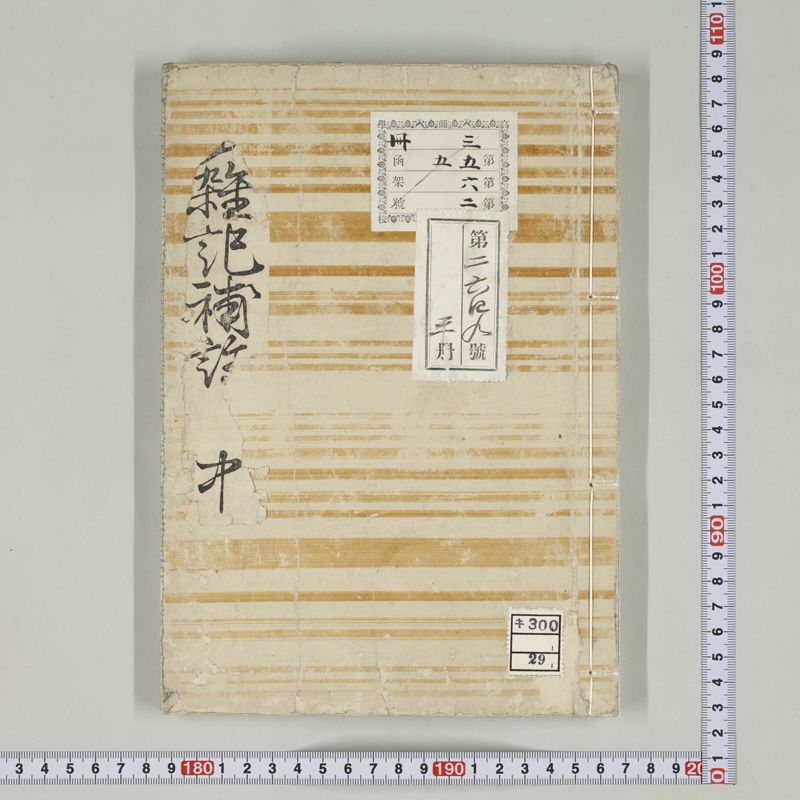 雜記補
中
三 冊
第五 五函
第六 架
第二 號
第二六四九號
三册
キ300
29
3 4 5 6 7 8 9 180 1 2 3 4 5 6 7 8 9 190 1 2 3 4 5 6 7 8 9 20
110 9 8 7 6 5 4 3 2 1 100 9 8 7 6 5 4 3 2 1 90 9 8 7 6 5 4 3 2 1 0